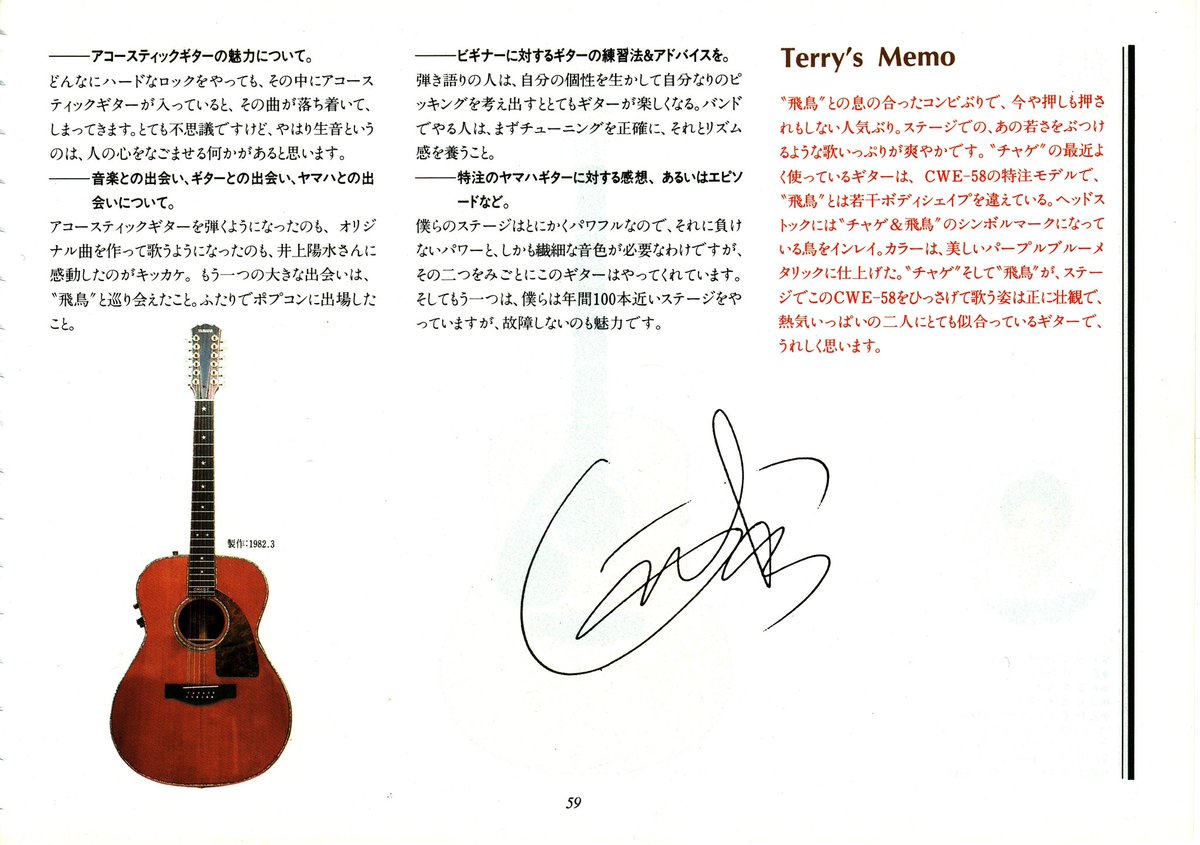 ———アコースティックギターの魅力について。
どんなにハードなロックをやっても、その中にアコース
ティックギターが入っていると、その曲が落ち着いて、
しまってきます。とても不思議ですけど、やはり生音という
のは、人の心をなごませる何かがあると思います。
———音楽との出会い、ギターとの出会い、ヤマハとの出
会いについて。
アコースティックギターを弾くようになったのも、オリジ
ナル曲を作って歌うようになったのも、井上陽水さんに
感動したのがキッカケ。もう一つの大きな出会いは、
〝飛鳥〟と巡り会えたこと。ふたりでポプコンに出場した
こと。
YAMAHA
製作:1982.3
CHAGE
———ビギナーに対するギターの練習法&アドバイスを。
弾き語りの人は、自分の個性を生かして自分なりのピ
ッキングを考え出すととてもギターが楽しくなる。バンド
でやる人は、まずチューニングを正確に、それとリズム
感を養うこと。
———特注のヤマハギターに対する感想、あるいはエピソ
ードなど。
僕らのステージはとにかくパワフルなので、それに負け
ないパワーと、しかも繊細な音色が必要なわけですが、
その二つをみごとにこのギターはやってくれています。
そしてもう一つは、僕らは年間100本近いステージをや
っていますが、故障しないのも魅力です。
Terry's Memo
〝飛鳥〟との息の合ったコンビぶりで、今や押しも押さ
れもしない人気ぶり。ステージでの、あの若さをぶつけ
るような歌いっぷりが爽やかです。〝チャゲ〟の最近よ
く使っているギターは、CWE-58の特注モデルで、
〝飛鳥〟とは若干ボディシェイプを違えている。ヘッドス
トックには〝チャゲ&飛鳥〟のシンボルマークになって
いる鳥をインレイ。カラーは、美しいパープルブルーメ
タリックに仕上げた。〝チャゲ〟そして〝飛鳥〟が、ステー
ジでこのCWE-58をひっさげて歌う姿は正に壮観で、
熱気いっぱいの二人にとても似合っているギターで、
うれしく思います。
59